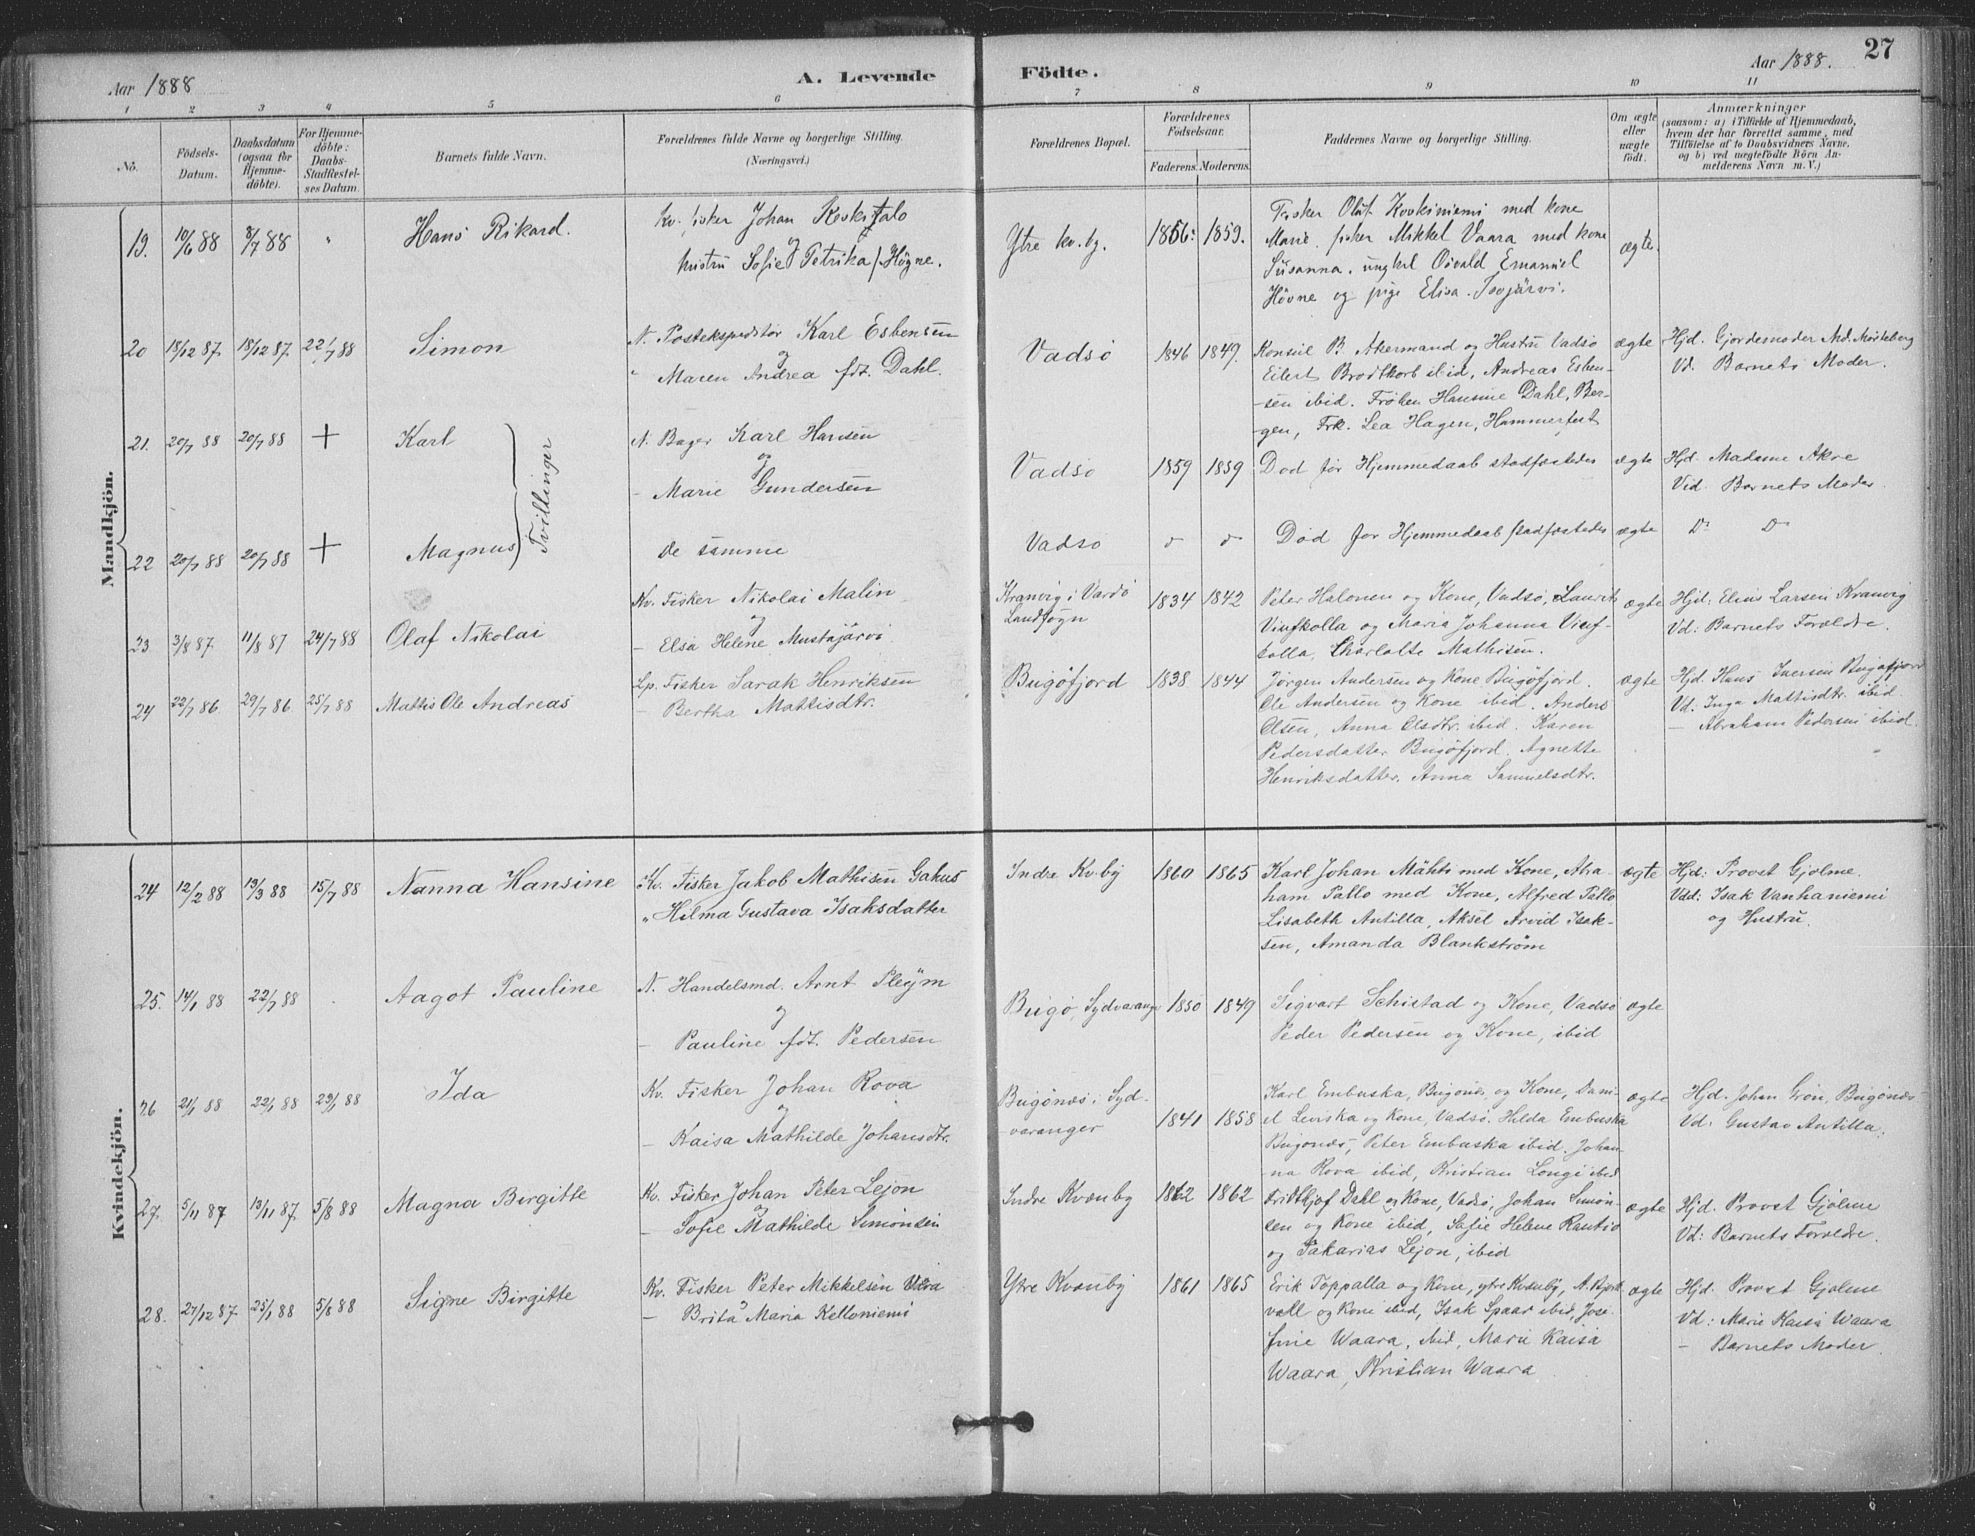 Aar 1888
A. Levende Födte.
Aar 1888.
27
1 2 3 4 5 6 7 8 9 10 11
No.
Födsels-Datum.
Daabsdatum (ogsaa for Hjemme-döbte).
For Hjemme-döbte: Daabs-Stadfæstel-ses Datum.
Barnets fulde Navn.
Forældrenes fulde Navne og borgerlige Stilling.
(Næringsvei.)
Forældrenes Bopæl.
Forældrenes Födselsaar.
Faderens. Moderens.
Faddernes Navne og borgerlige Stilling.
Om ægte eller uægte födt.
Anmærkninger
(saasom: a) i Tilfælde af Hjemmedaab, hvem der har forrettet samme, med Tilföielse af to Daabsvidners Navne, og b) ved uægtefödte Börn An-melderens Navn m. V.)
Mandkjön.
19. 10/6 88 8/7 88 " Hans Rikard. Kv. fisker Johan Koski
og
hustru Sofie Petrika Høgne.
Ytre kv. by. 1856. 1859.
Fisker Oluf Koskiniemi med kone
Marie. fisker Mikkel Vaara med kone
Susanna. ungkel Osvald Emanuel
Høvne og pige Elisa Isojärvi.
ægte.
20 18/12 87. 18/12 87. 22/7 88 Simon N. Postekspeditør Karl Esbensen
og
" Maren Andrea fdt. Dahl.
Vadsø 1846 1849.
Konsul B. Akermand og Hustru Vadsø
Eilert Brodtkorb ibid, Andreas Esben-
sen ibid. Frøken Hansine Dahl, Ber-
gen, Frk. Lea Hagen, Hammerfest
ægte
Hjd. Gjordemoder
Vd. Barnets Moder.
21. 20/7 88 20/7 88 + Karl N. Bager Karl Hansen
og
- Marie Gundersen
Tvillinger
Vadsø 1859 1859 Død før Hjemmedaab stadfæstedes ægte
Hjd. Madame Akre
Vid. Barnets Moder.
22 20/7 88 20/7 88 + Magnus de samme Vadsø
Død før Hjemmedaab stadfæstedes ægte Do Do
23 3/8 87. 11/8 87 24/7 88 Olaf Nikolai Kv. Fisker Nikolai Malin
og
- Elsa Helene Mustajärvi
Kramvig i Vardø
Landsogn
1834 1842
Peter Halonen og Kone, Vadsø, Laurits
og Maria Johanna
Charlotte Mathisen.
ægte
Hjd: Larsen Kramvig
Vd: Barnets Forældre.
24 22/7 86. 29/7 86. 25/7 88 Mattis Ole Andreas Lp. Fisker Sarak Henriksen
- Bertha Mattisdtr.
Bugøfjord 1838 1844
Jørgen Andersen og Kone Bugøfjord.
Ole Andersen og Kone ibid. Anders
Olsen, Anna Olsdtr. ibid. Karen
Pedersdatter Bugøfjord. Agnette
Henriksdatter. Anna Samuelsdtr.
ægte
Hjd. Hans Iversen Bugøfjord
Vd: Inga Mattisdtr. ibid.
- Abraham Pedersen ibid.
Kvindekjön.
24 12/2 88 13/3 88 15/7 88 Nanna Hansine Kv. Fisker Jakob Mathisen Gakus
" Hilma Gustava Isaksdatter
Indre Kvby 1860 1865
Karl Johan Mähti med Kone, Abra-
ham Pallo med Kone, Alfred Pallo
Lisabeth Antilla, Aksel Arvid Isak-
sen, Amanda Blankström
ægte
Hjd: Provst Gjølme.
Vdd: Isak Vanhaniemi
og Hustru.
25. 14/1 88 22/7 88 . Aagot Pauline N. Handelsmd. Arnt Pleym
og
- Pauline fdt. Pedersen
Bugø, Sydvaranger 1850 1849
Sigvart Schistad og Kone, Vadsø
Peder Pedersen og Kone, ibid
ægte
26 21/1 88 22/1 88 29/7 88 Ida Kv. Fisker Johan Rova
og
- Kaisa Mathilde Johansdtr.
Bugønæs i Syd-
varanger
1841 1858
Karl Embuska, Bugønæs og Kone, Dani-
el Levska og Kone, Vadsø. Hilda Embuska
Bugønæs, Peter Embuska ibid. Johan-
na Rova ibid, Kristian Longi ibid
ægte
Hjd. Johan Grøn, Bugønæs
Vd: Gustav Antilla.
27. 5/11 87 13/11 87. 5/8 88 Magna Birgitte Kv. Fisker Johan Peter Lejon
og
- Sofie Mathilde Simonsen
Indre Kvænby 1862 1862
Fridthjof Dahl og Kone, Vadsø, Johan Simon-
sen og Kone ibid, Sofie Helene Rautio
og Sakarias Lejon, ibid
ægte
Hjd. Provst Gjølme
Vd: Barnets Forældre.
28. 27/12 87. 25/1 88 5/8 88 Signe Birgitte Kv. Fisker Peter Mikkelsen
- Brita Maria Kelloniemi
Ytre Kvænby 1861 1865
Erik Toppalla og Kone, ytre Kvænby, A.
og Kone ibid, Isak Spaar ibid, Jose-
fine Waara, ibid, Marie Kaisa
Waara, Kristian Waara
ægte
Hjd. Provst Gjølme
Vd: Marie Kaisa Waara
- Barnets Moder.